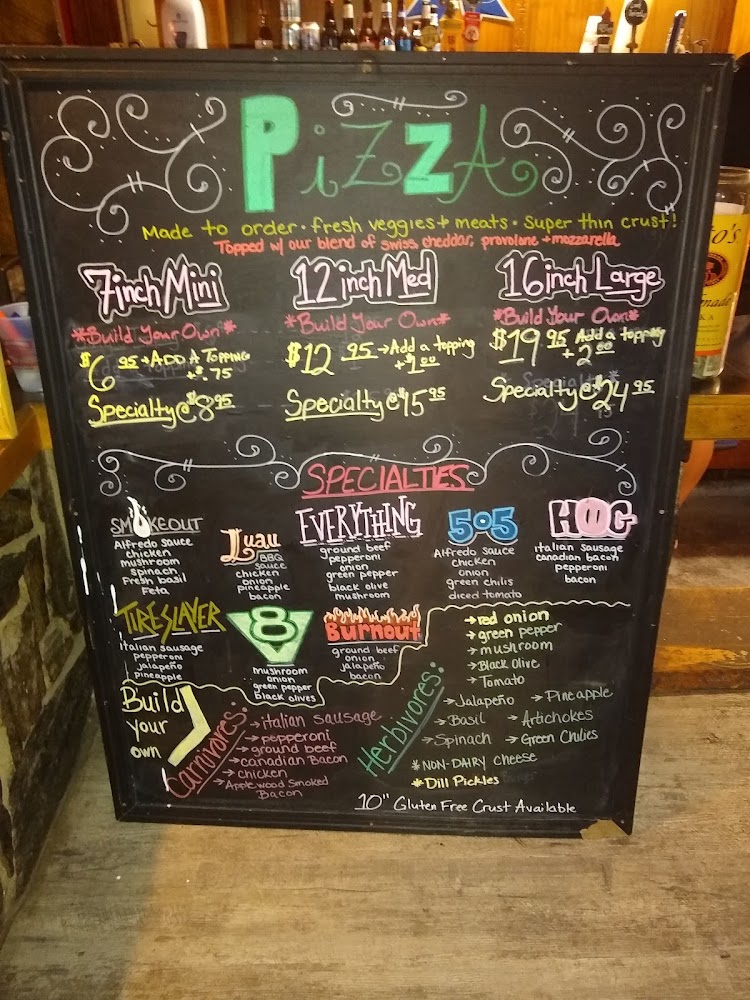 PiZZA
Made to order · fresh veggies + meats · Super thin crust!
Topped w/ our blend of swiss, cheddar, provolone + mozzarella
7inch Mini
*Build Your Own*
$6.95 → ADD A TOPPING
+ $.75
Specialty @ $8.95
12 inch Med
*Build Your Own*
$12.95 → Add a topping
+ $1.00
Specialty @ $15.95
16 inch Large
*Build Your Own*
$19.95 Add a topping
+ 2.00
Specialty @ $24.95
SPECIALTIES
SMOKEOUT
Alfredo sauce
chicken
mushroom
spinach
Fresh basil
Feta
Luau
BBQ
sauce
chicken
onion
pineapple
bacon
EVERYTHING
ground beef
pepperoni
onion
green pepper
black olive
mushroom
505
Alfredo sauce
chicken
onion
green chilis
diced tomato
HOG
italian sausage
canadian bacon
pepperoni
bacon
TIRESLAYER
italian sausage
pepperoni
jalapeño
pineapple
8
mushroom
onion
green pepper
black olives
Burnout
ground beef
onion
jalapeño
bacon
Build
your
own
Carnivores:
→ italian sausage
→ pepperoni
→ ground beef
→ canadian Bacon
→ chicken
→ Applewood Smoked
Bacon
Herbivores:
→ red onion
→ green pepper
→ mushroom
→ Black Olive
→ Tomato
→ Jalapeño → Pineapple
→ Basil → Artichokes
→ Spinach → Green Chilies
* NON-DAIRY cheese
* Dill Pickles
10" Gluten Free Crust Available